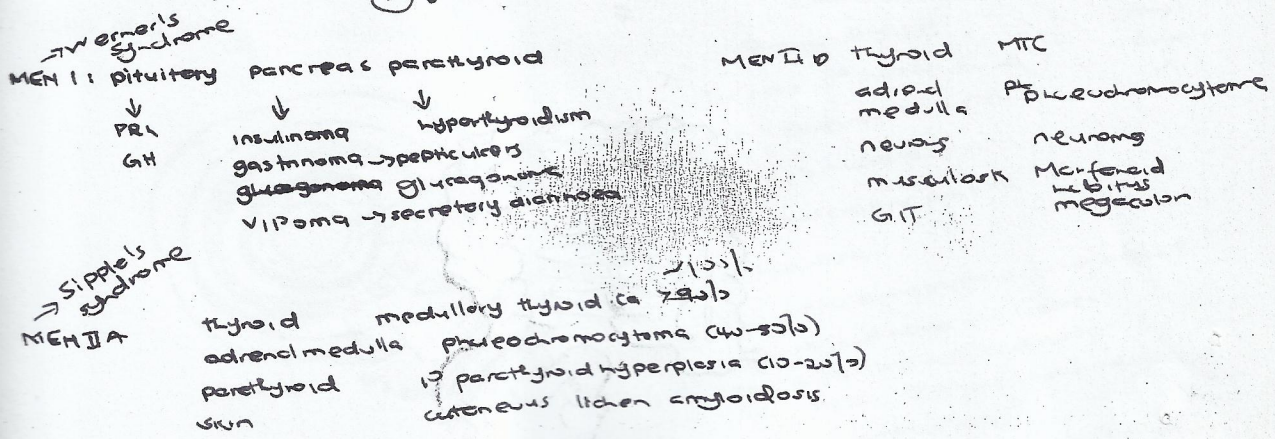 → Werner's
syndrome
MEN I : pituitory pancreas parathyroid
↓ ↓ ↓
PRL insulinoma hyperthyroidism
GH gastrinoma → peptic ulcers
glucagonoma glucagonoma
VIPoma → secretory diarrhoea
MEN II b thyroid MTC
adrenal
medulla phaeochromocytoma
nervous neuroma
musculosk Marfanoid
habitus
GIT megacolon
→ Sipple's
syndrome
MEN II A
thyroid medullary thyroid ca >90% ~100%
adrenal medulla phaeochromocytoma (40-50%)
parathyroid 1° parathyroid hyperplasia (10-20%)
skin cutaneous lichen amyloidosis